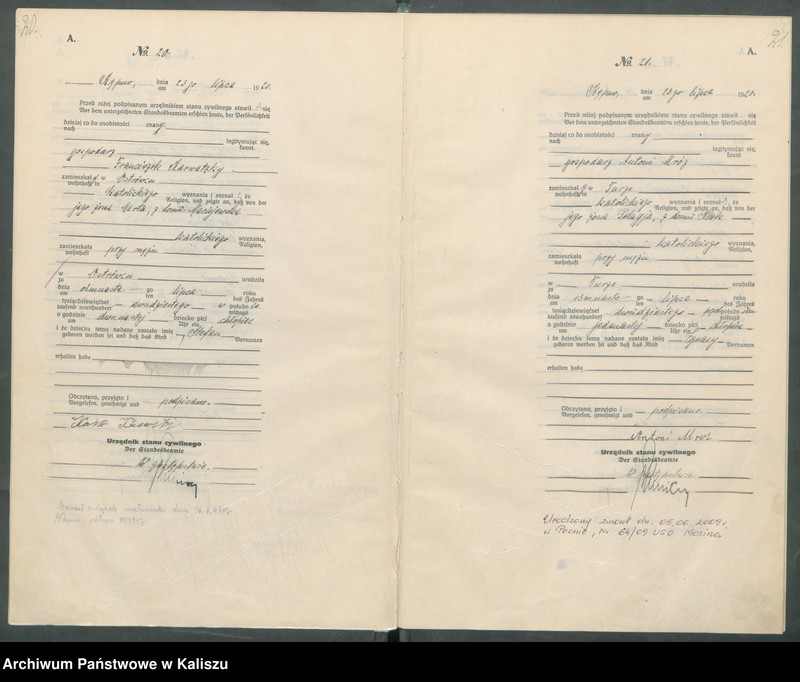 20.
A.
№ 20.
Kępno, dnia am 23go lipca 1920.
Przed niżej podpisanym urzędnikiem stanu cywilnego stawił się
Vor dem unterzeichneten Standesbeamten erschien heute, der Persönlichkeit
dzisiaj co do osobistości znany
nach
legitymując się,
kannt
gospodarz
Franciszek
zamieszkały w
wohnhaft in
katolickiego wyznania i zeznał, że
Religion, und zeigte an, daß von der
jego żona z domu
katolickiego wyznania,
Religion,
zamieszkała
wohnhaft przy mężu
w
zu
urodziła
dnia ośmnastego lipca roku
am ten des Jahres
tysiącdziewięćset dwudziestego w południe
tausend neunhundert mittags
o godzinie dwunastej dziecko płci chłopiec
um Uhr ein
i że dziecku temu nadano zostało imię Stefan
geboren worden sei und daß das Kind Vornamen
erhalten habe
Odczytano, przyjęto i
Vorgelesen, genehmigt und podpisano.
Urzędnik stanu cywilnego
Der Standesbeamte
W zastępstwie.
21.
A.
№ 21.
Kępno, dnia am 23go lipca 1920.
Przed niżej podpisanym urzędnikiem stanu cywilnego stawił się
Vor dem unterzeichneten Standesbeamten erschien heute, der Persönlichkeit
dzisiaj co do osobistości znany
nach
legitymując się,
kannt
gospodarz Antoni Mróz
zamieszkały w Turze
wohnhaft in
katolickiego wyznania i zeznał, że
Religion, und zeigte an, daß von der
jego żona Pelagja, z domu
katolickiego wyznania,
Religion,
zamieszkała
wohnhaft przy mężu
w Turze
zu
urodziła
dnia ośmnastego lipca roku
am ten des Jahres
tysiącdziewięćset dwudziestego
tausend neunhundert mittags
o godzinie jedenastej dziecko płci chłopiec
um Uhr ein
i że dziecku temu nadane zostało imię Ignacy
geboren worden sei und daß das Kind Vornamen
erhalten habe
Odczytano, przyjęto i
Vorgelesen, genehmigt und podpisano.
Antoni Mroz
Urzędnik stanu cywilnego
Der Standesbeamte
W zastępstwie
Urodzony zmarł dn. 05.06.2009r.
w Pecnie, Nr 64/09 USC Mosina
Archiwum Państwowe w Kaliszu